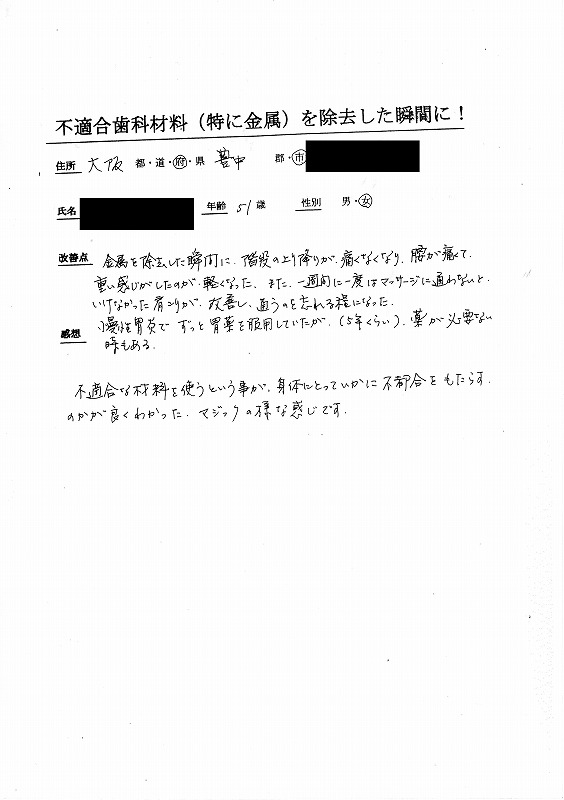 不適合歯科材料（特に金属）を除去した瞬間に！
住所 大阪 都・道・府・県 豊中 郡・市
氏名 年齢 51歳 性別 男・女
改善点 金属を除去した瞬間に、階段の上り降りが、痛くなくなり、腰が痛くて、
重い感じがしたのが、軽くなった。また、一週間に一度はマッサージに通わないと、
いけなかった肩こりが、改善し、通うのを忘れる程になった。
感想 慢性胃炎で ずっと胃薬を服用していたが、（5年くらい）、薬が必要ない
時もある。
不適合な材料を使うという事が、身体にとっていかに不都合をもたらす、
のかが良くわかった。マジックの様な感じです。